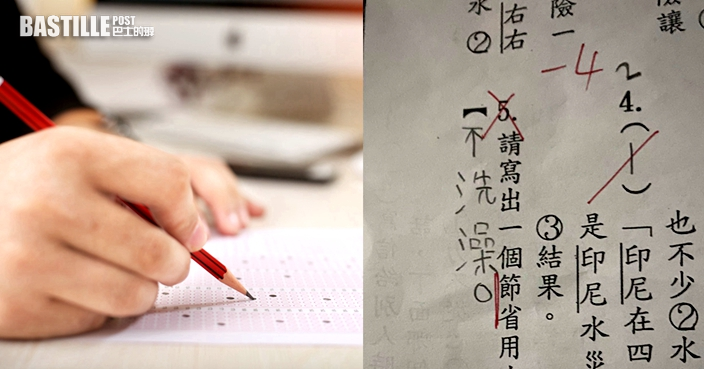 BASTILLE POST
巴士的報
讓
也不少②水
2
4.( )「印尼在四
是印尼水災
險一
-4
③結果。
右右
5.請寫出一個節省用
水②
【不洗澡。